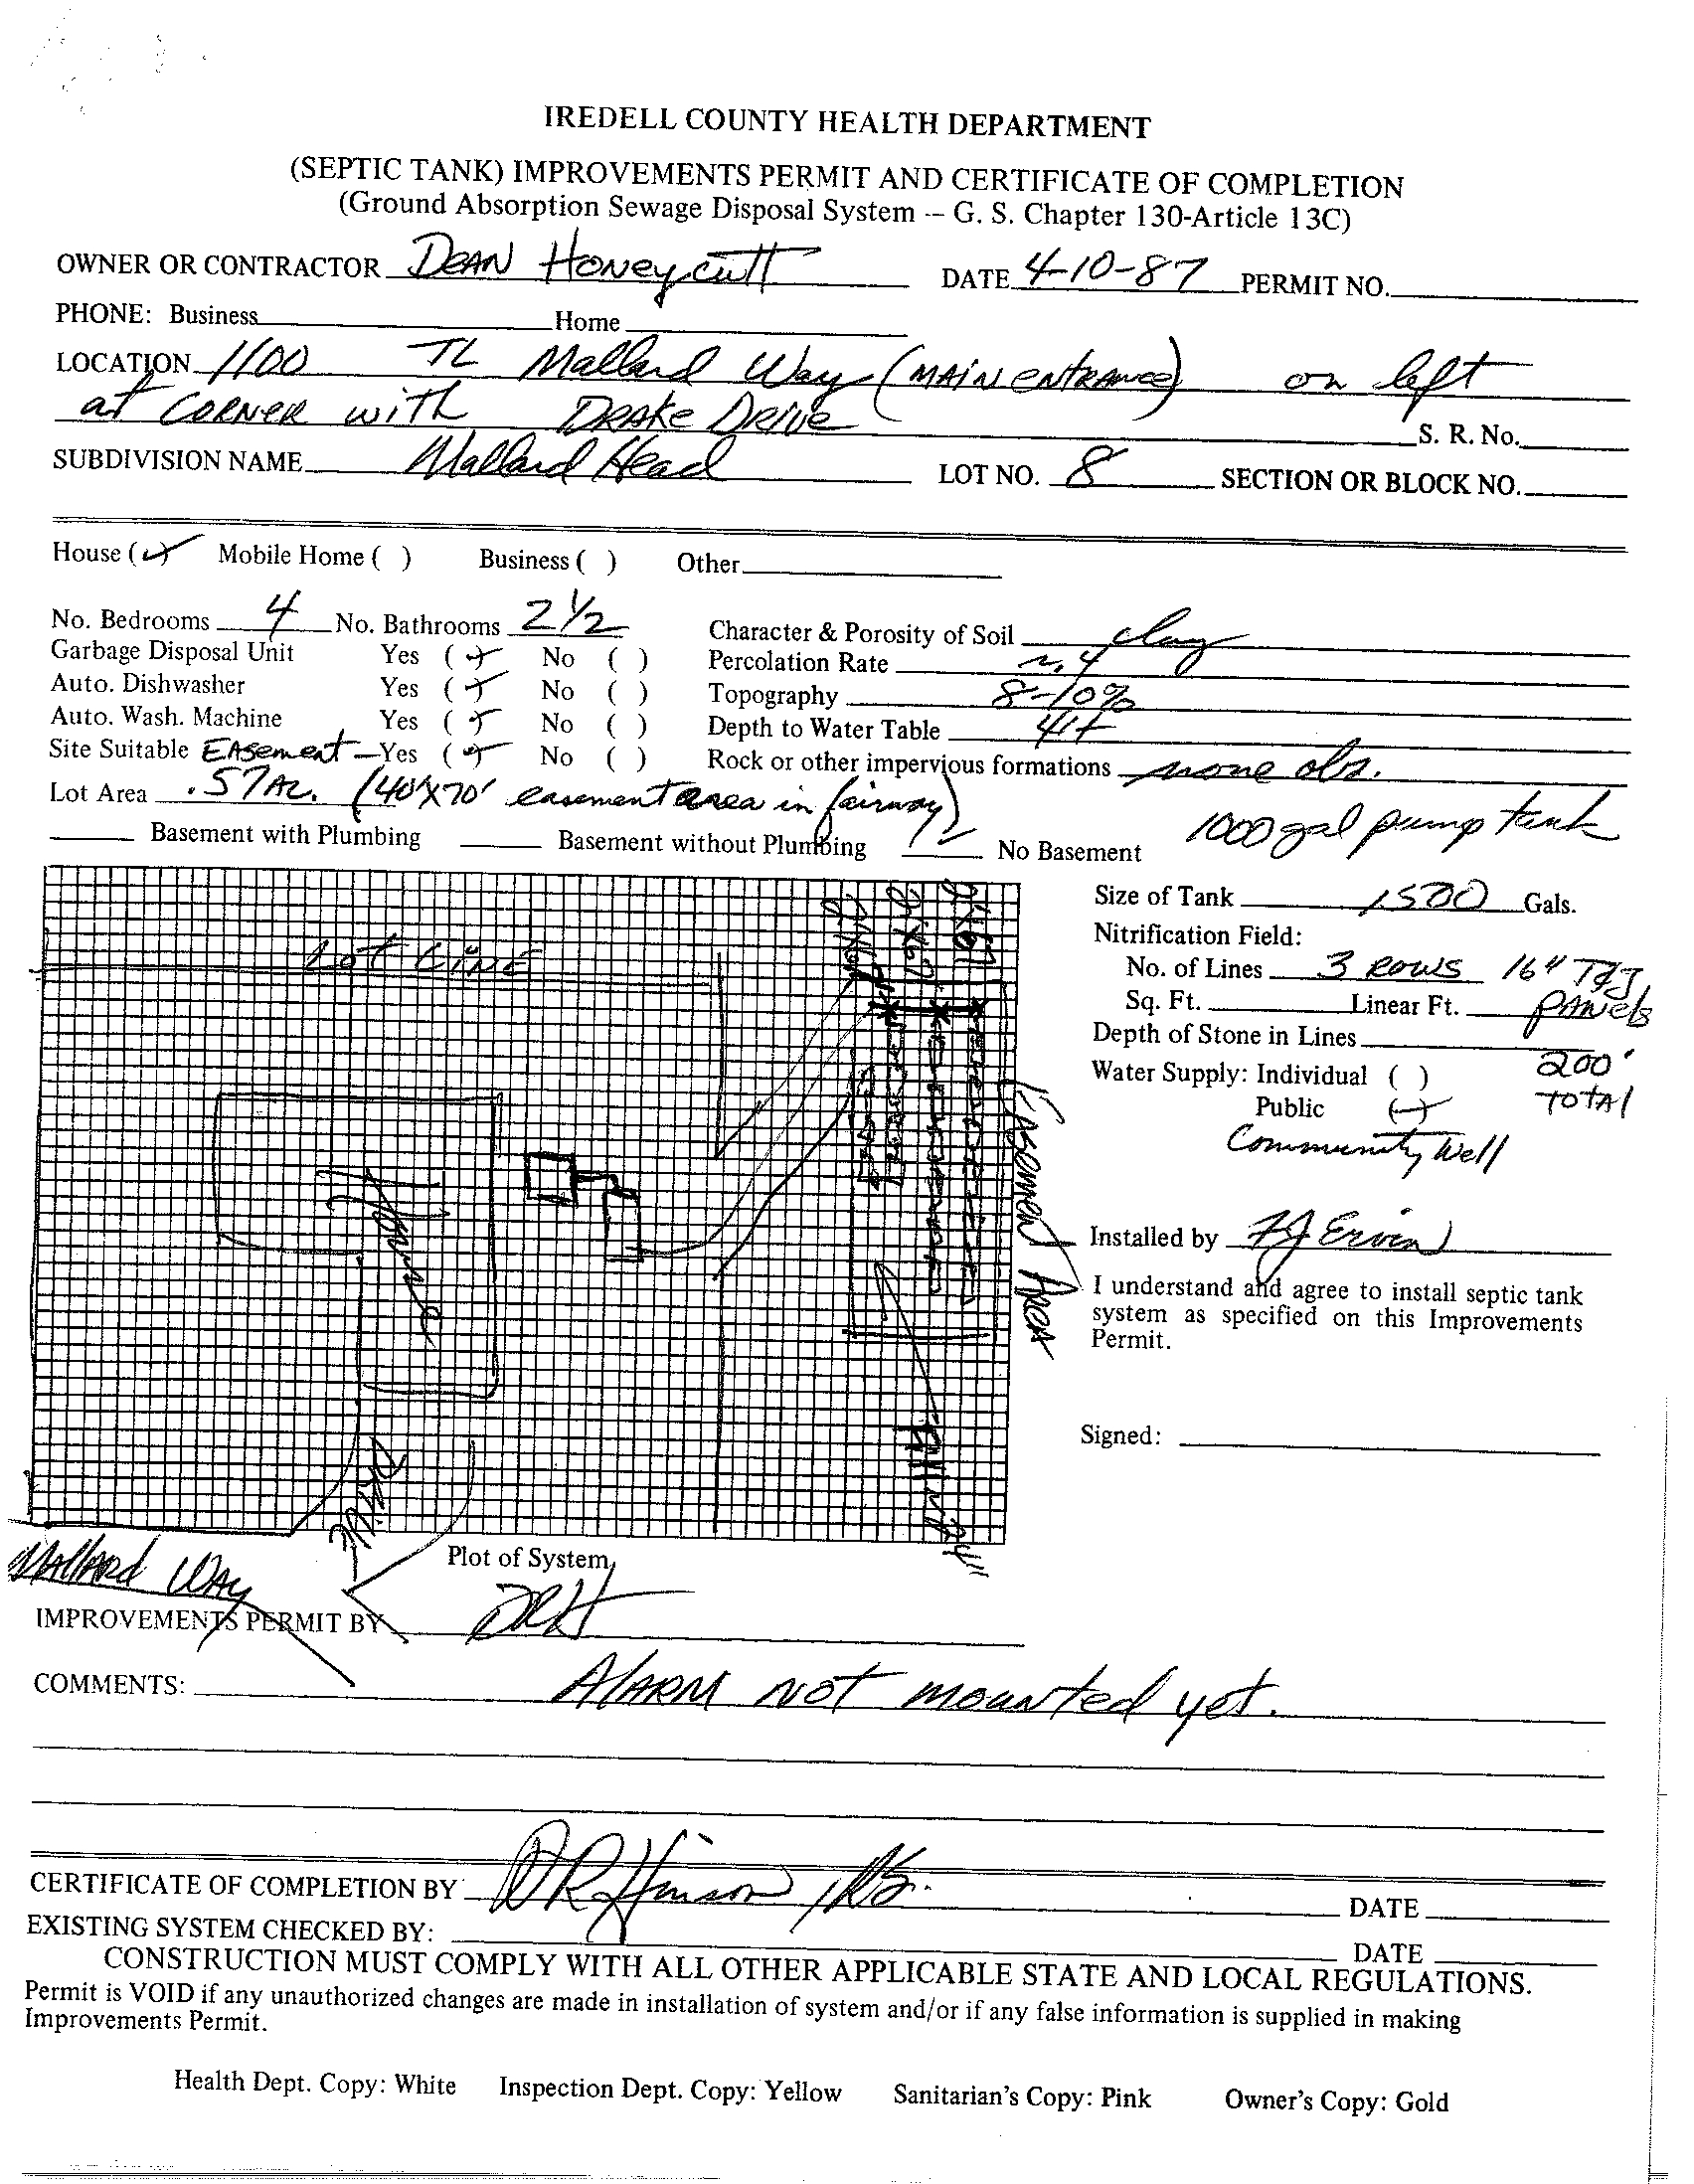 IREDELL COUNTY HEALTH DEPARTMENT
(SEPTIC TANK) IMPROVEMENTS PERMIT AND CERTIFICATE OF COMPLETION
(Ground Absorption Sewage Disposal System -- G. S. Chapter 130-Article 13C)
OWNER OR CONTRACTOR DEAN HONEYCUTT DATE 4-10-87 PERMIT NO.
PHONE: Business Home
LOCATION 1100 TL Mallard Way (MAIN ENTRANCE) on left
at CORNER with DRAKE DRIVE S. R. No.
SUBDIVISION NAME Mallard Head LOT NO. 8 SECTION OR BLOCK NO.
House (✓) Mobile Home ( ) Business ( ) Other
No. Bedrooms 4 No. Bathrooms 2 1/2 Character & Porosity of Soil clay
Garbage Disposal Unit Yes (✓) No ( ) Percolation Rate ~.4
Auto. Dishwasher Yes (✓) No ( ) Topography 8-10%
Auto. Wash. Machine Yes (✓) No ( ) Depth to Water Table 4'+
Site Suitable EASement - Yes (✓) No ( ) Rock or other impervious formations none obs.
Lot Area .57 Ac. (40'X70' easement area in fairway)
Basement with Plumbing Basement without Plumbing ✓ No Basement 1000 gal pump tank
Size of Tank 1500 Gals.
Nitrification Field:
No. of Lines 3 ROWS 16" T&J
Sq. Ft. Linear Ft. PANels
Depth of Stone in Lines 200'
Water Supply: Individual ( ) TOTAl
Public (✓)
Community Well
Installed by FJ Ervin
I understand and agree to install septic tank
system as specified on this Improvements
Permit.
Signed:
LOT LINE
House
EASEMENT AREA
DRIVE
24"
Mallard Way
Plot of System
IMPROVEMENTS PERMIT BY DRH
COMMENTS: AlARM NOT mounted yet.
CERTIFICATE OF COMPLETION BY DR Hinson, RS. DATE
EXISTING SYSTEM CHECKED BY: DATE
CONSTRUCTION MUST COMPLY WITH ALL OTHER APPLICABLE STATE AND LOCAL REGULATIONS.
Permit is VOID if any unauthorized changes are made in installation of system and/or if any false information is supplied in making
Improvements Permit.
Health Dept. Copy: White Inspection Dept. Copy: Yellow Sanitarian's Copy: Pink Owner's Copy: Gold